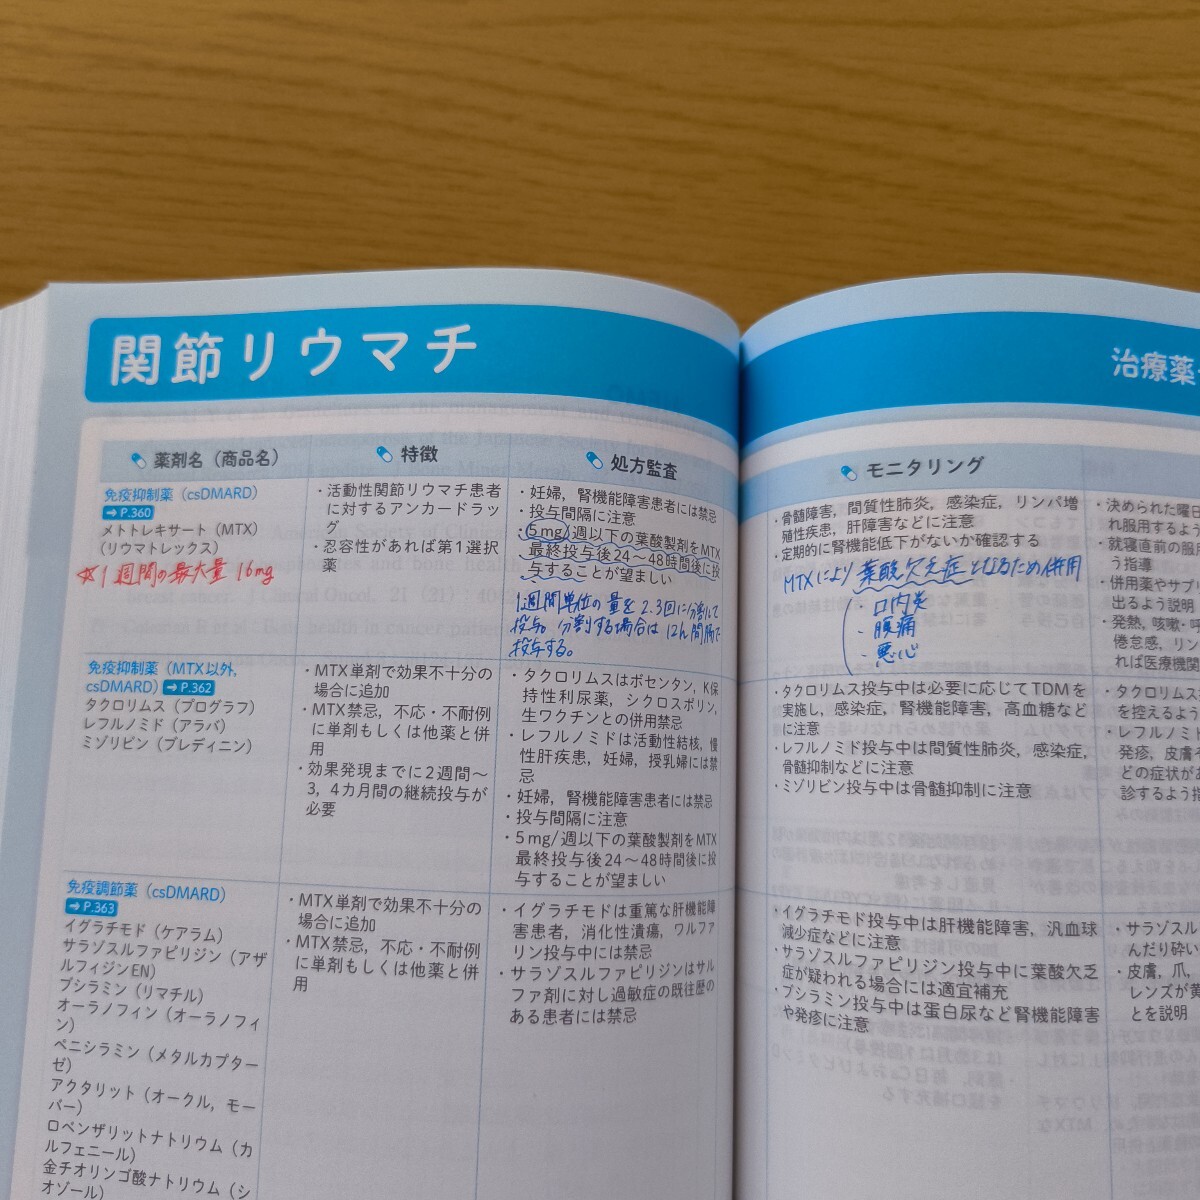 関節リウマチ
治療薬
薬剤名（商品名）
特徴
処方監査
モニタリング
免疫抑制薬（csDMARD）
➡P.360
メトトレキサート（MTX）
（リウマトレックス）
☆1週間の最大量 16mg
・活動性関節リウマチ患者
に対するアンカードラッ
グ
・忍容性があれば第1選択
薬
・妊婦，腎機能障害患者には禁忌
・投与間隔に注意
・5mg/週以下の葉酸製剤をMTX
最終投与後24～48時間後に投
与することが望ましい
1週間単位の量を2.3回に分割して
投与。分割する場合は12h間隔で
投与する。
・骨髄障害，間質性肺炎，感染症，リンパ増
殖性疾患，肝障害などに注意
・定期的に腎機能低下がないか確認する
MTXにより葉酸欠乏症となるため併用
・口内炎
・腹痛
・悪心
・決められた曜日
れ服用するよう
・就寝直前の服用
う指導
・併用薬やサプリ
出るよう説明
・発熱，咳嗽・呼
倦怠感，リン
れば医療機関
免疫抑制薬（MTX以外，
csDMARD）➡P.362
タクロリムス（プログラフ）
レフルノミド（アラバ）
ミゾリビン（ブレディニン）
・MTX単剤で効果不十分の
場合に追加
・MTX禁忌，不応・不耐例
に単剤もしくは他薬と併
用
・効果発現までに2週間～
3，4カ月間の継続投与が
必要
・タクロリムスはボセンタン，K保
持性利尿薬，シクロスポリン，
生ワクチンとの併用禁忌
・レフルノミドは活動性結核，慢
性肝疾患，妊婦，授乳婦には禁
忌
・妊婦，腎機能障害患者には禁忌
・投与間隔に注意
・5mg/週以下の葉酸製剤をMTX
最終投与後24～48時間後に投
与することが望ましい
・タクロリムス投与中は必要に応じてTDMを
実施し，感染症，腎機能障害，高血糖など
に注意
・レフルノミド投与中は間質性肺炎，感染症，
骨髄抑制などに注意
・ミゾリビン投与中は骨髄抑制に注意
・タクロリムス
を控えるよう
・レフルノミド
発疹，皮膚や
どの症状があ
診するよう指
免疫調節薬（csDMARD）
➡P.363
イグラチモド（ケアラム）
サラゾスルファピリジン（アザ
ルフィジンEN）
ブシラミン（リマチル）
オーラノフィン（オーラノフィ
ン）
ペニシラミン（メタルカプター
ゼ）
アクタリット（オークル，モー
バー）
ロベンザリットナトリウム（カ
ルフェニール）
金チオリンゴ酸ナトリウム（シ
オゾール）
・MTX単剤で効果不十分の
場合に追加
・MTX禁忌，不応・不耐例
に単剤もしくは他薬と併
用
・イグラチモドは重篤な肝機能障
害患者，消化性潰瘍，ワルファ
リン投与中には禁忌
・サラゾスルファピリジンはサル
ファ剤に対し過敏症の既往歴の
ある患者には禁忌
・イグラチモド投与中は肝機能障害，汎血球
減少症などに注意
・サラゾスルファピリジン投与中に葉酸欠乏
症が疑われる場合には適宜補充
・ブシラミン投与中は蛋白尿など腎機能障害
や発疹に注意
・サラゾスル
んだり砕い
・皮膚，爪，
レンズが黄
とを説明